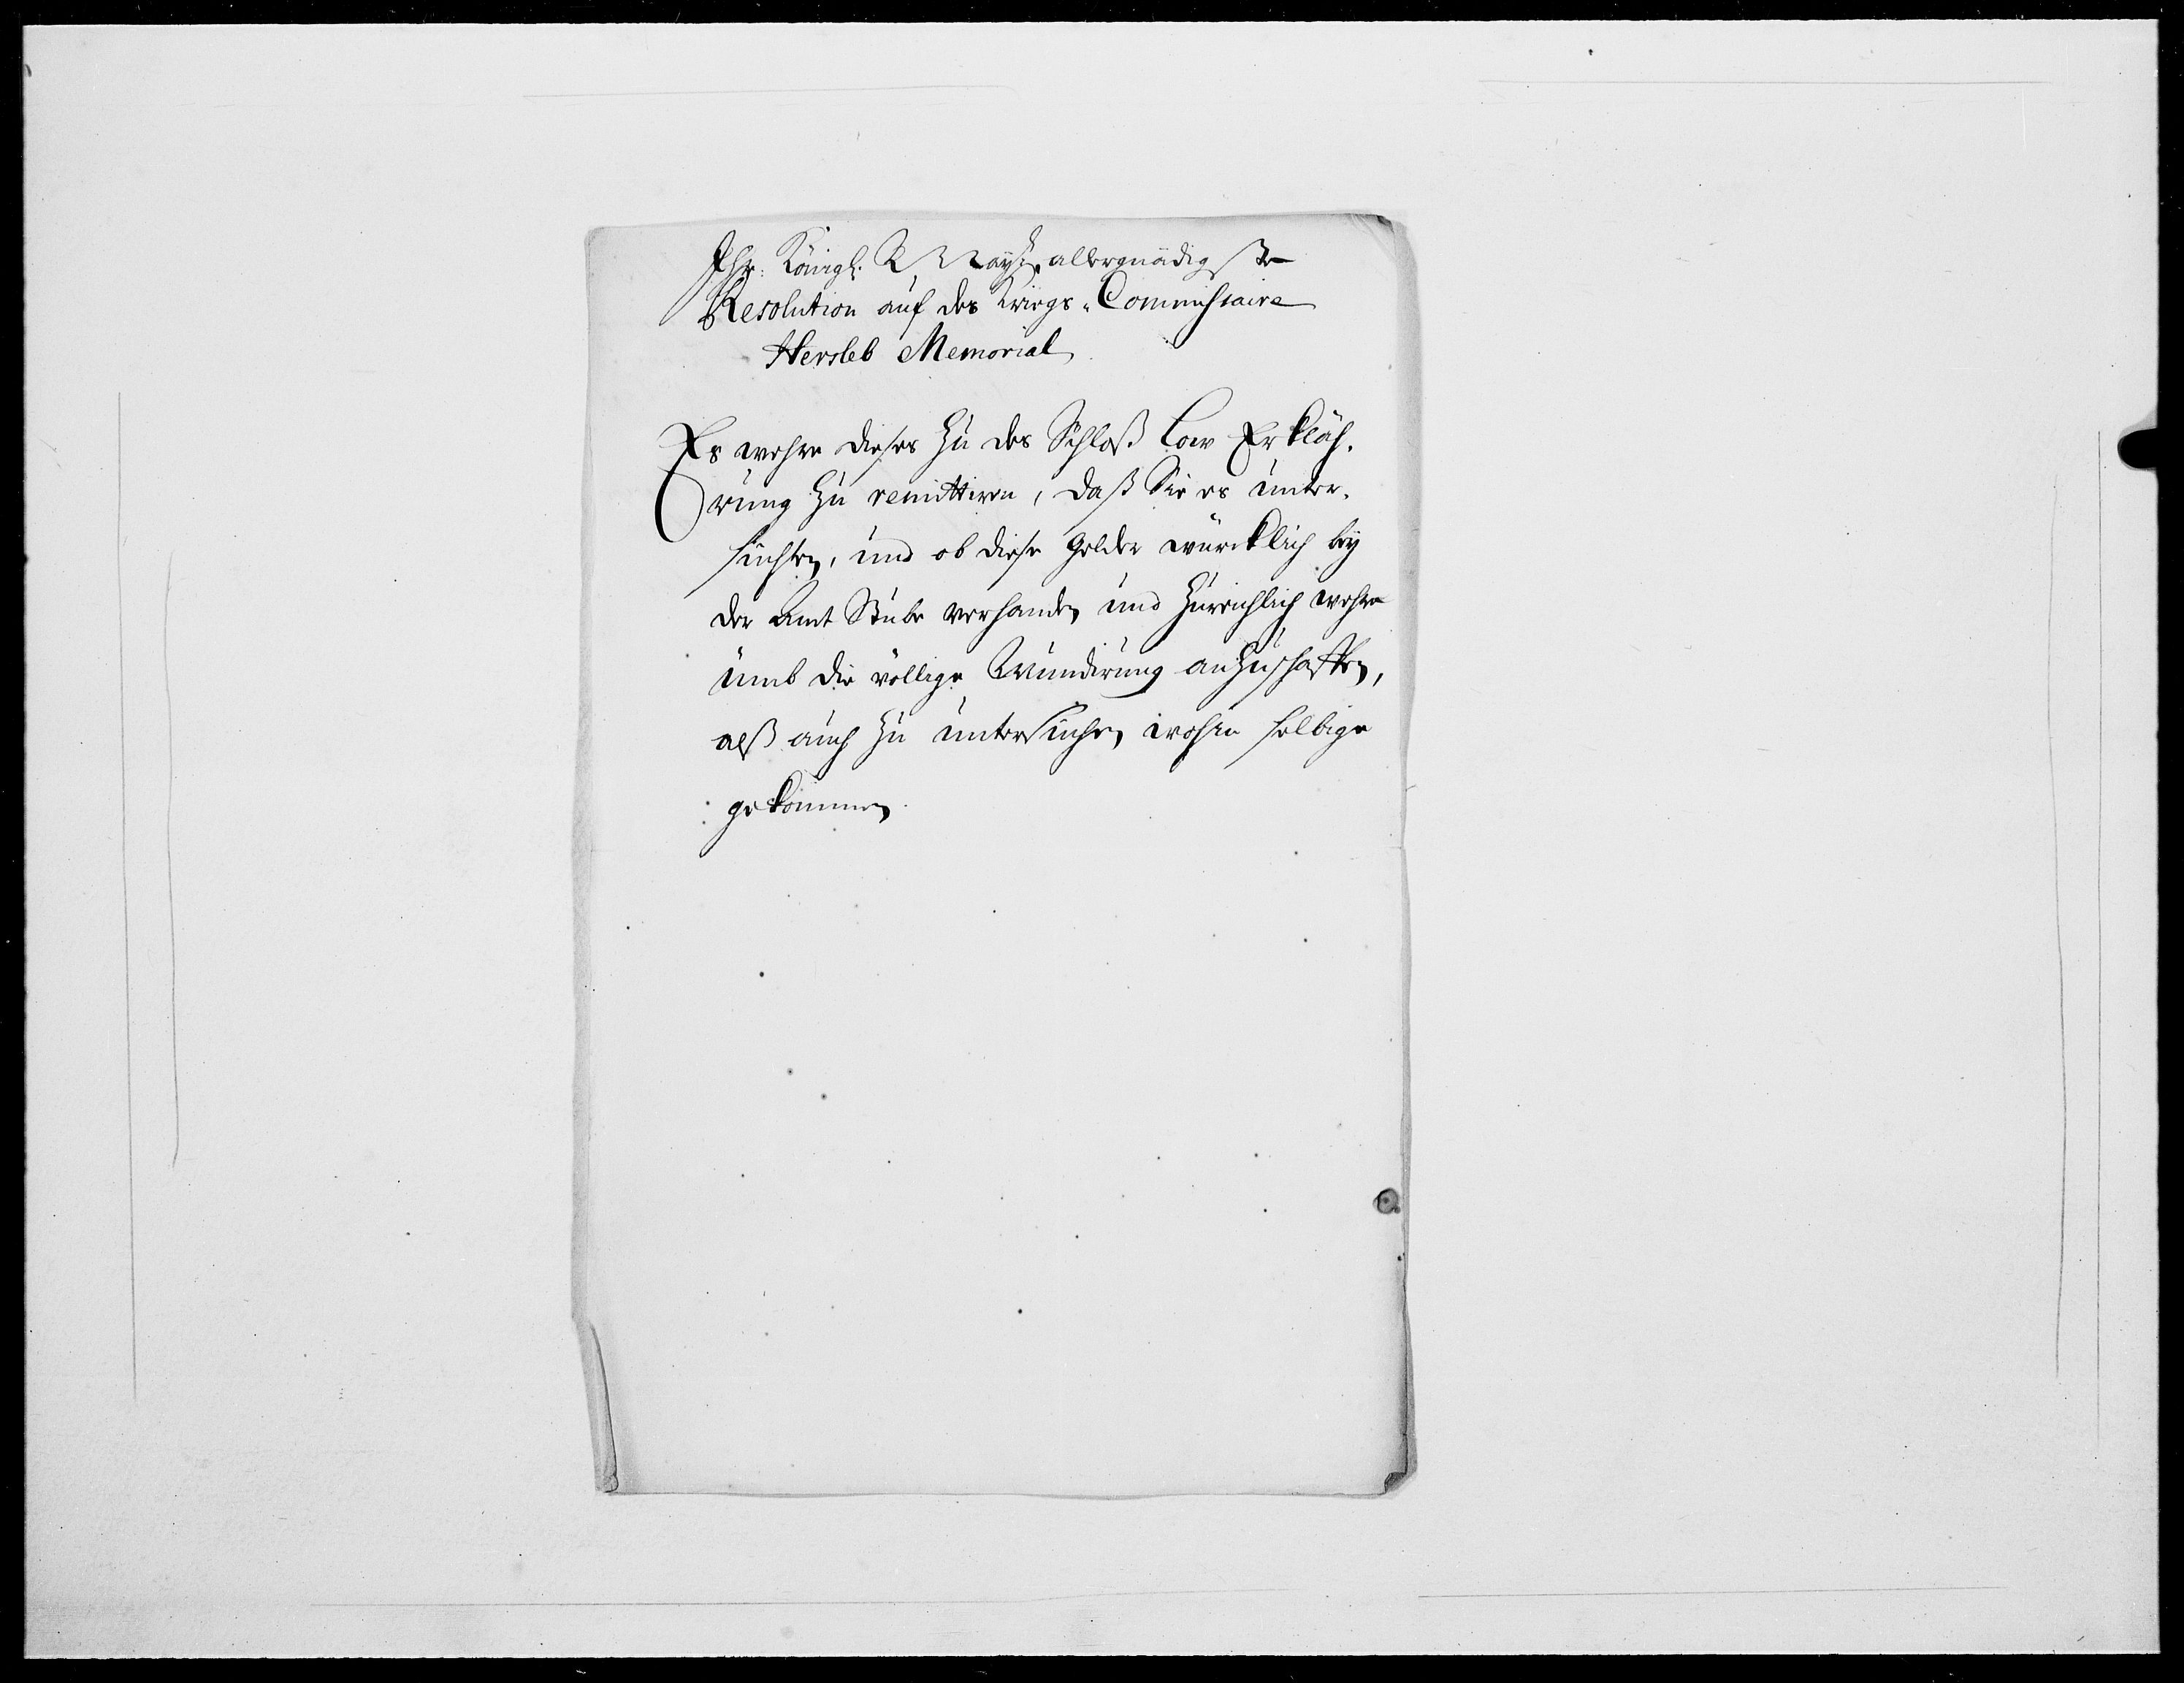 Ihr: Königl: Mayst: allergnädigste
Resolution auf des Kriegs-Commissaire
Hersleb Memorial
Es wehre dieses zu des Schloß Low Erkläh-
rung zu remittiren, daß Sie es unter-
suchten, und ob diese Gelder würcklich bey
der Amt Stube verhanden und zureichlich wehre
umb die völlige Mundirung anzuschaffen,
alß auch zu untersuchen wohin selbige
gekommen